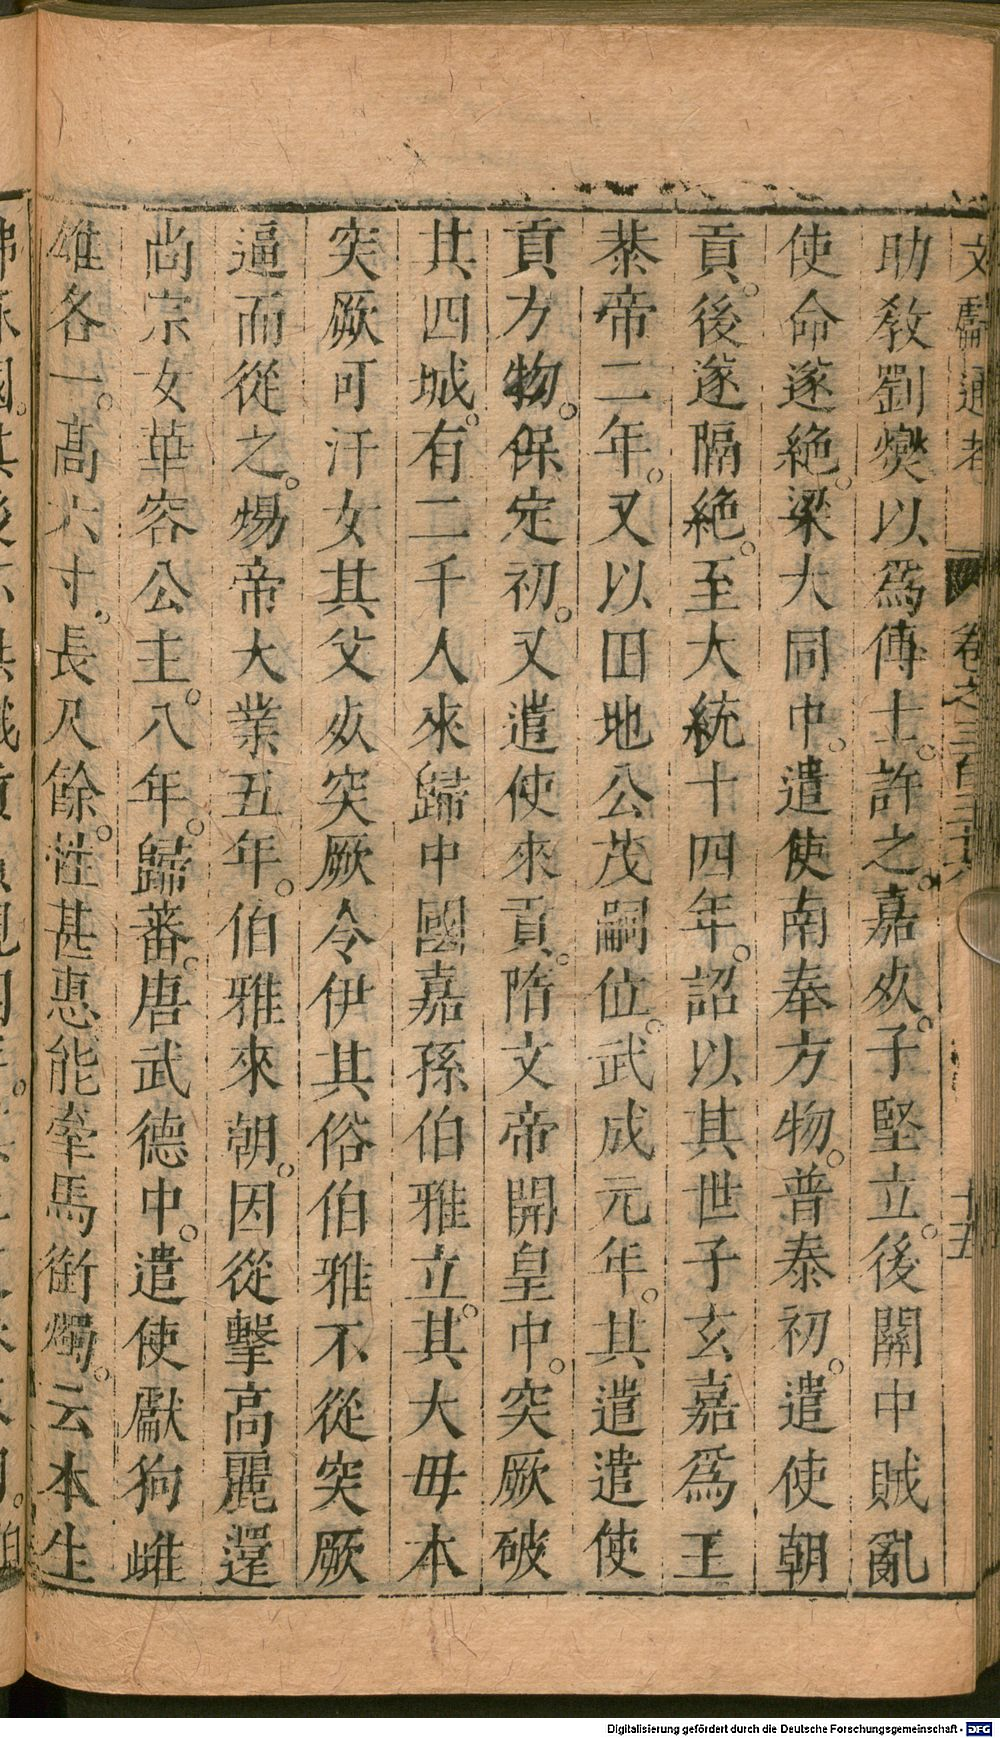 文獻通考 卷之三百三十六 十五
助教劉燮以爲傅士。許之。嘉㱙。子堅立。後關中賊亂
使命遂絶。梁大同中。遣使南奉方物。普泰初。遣使朝
貢。後遂隔絶。至大統十四年。詔以其世子玄嘉爲王
恭帝二年。又以田地公茂嗣位。武成元年。其遣遣使
貢方物。保定初。又遣使來貢。隋文帝開皇中。突厥破
其四城。有二千人來歸中國嘉孫伯雅立。其大母本
突厥可汗女其父㱙突厥令伊其俗伯雅不從突厥
逼而從之。煬帝大業五年。伯雅來朝。因從擊高麗還
尚宗女華容公主。八年。歸蕃。唐武德中。遣使獻狗雌
雄各一。高六寸。長尺餘。性甚惠能牽馬銜燭。云本生
Digitalisierung gefördert durch die Deutsche Forschungsgemeinschaft - DFG